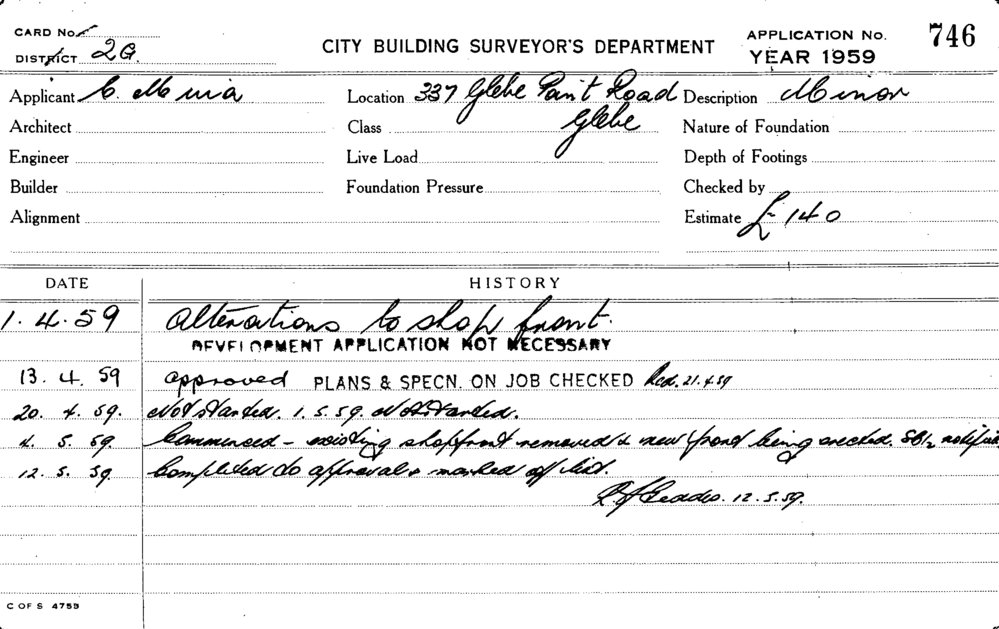 CARD No.
DISTRICT 2G.
CITY BUILDING SURVEYOR'S DEPARTMENT
APPLICATION No. 746
YEAR 1959
Applicant C.
Location 337 Glebe Point Road
Glebe
Description Minor
Architect
Class
Nature of Foundation
Engineer
Live Load
Depth of Footings
Builder
Foundation Pressure
Checked by
Alignment
Estimate £ 140
DATE
HISTORY
1.4.59 Alterations to shop front.
DEVELOPMENT APPLICATION NOT NECESSARY
13.4.59 approved PLANS & SPECN. ON JOB CHECKED 21.4.59
20.4.59. Not started. 1.5.59. Not Started.
4.5.59. Commenced – existing shopfront removed & new front being erected.
12.5.59. Completed to approval & marked off list.
12.5.59.
C OF S 4759